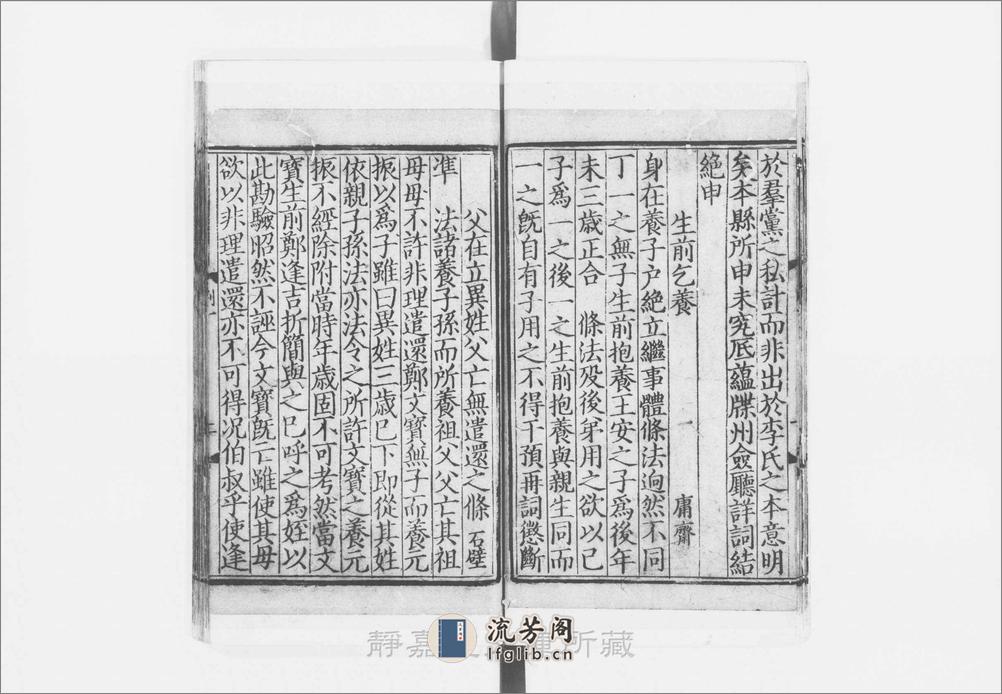 於羣黨之私計而非出於李氏之本意明
矣本縣所申未究底蘊牒州僉廳詳詞結
絶申
生前乞養 庸齋
身在養子户絶立繼事體條法逈然不同
丁一之無子生前抱養王安之子爲後年
未三歲正合 條法殁後弟用之欲以己
子爲一之後一之生前抱養與親生同而
一之旣自有子用之不得干預再詞懲斷
父在立異姓父亡無遣還之條 石壁
凖 法諸養子孫而所養祖父父亡其祖
母母不許非理遣還鄭文寳無子而養元
振以爲子雖曰異姓三歲已下即從其姓
依親子孫法亦法令之所許文寳之養元
振不經除附當時年歲固不可考然當文
寳生前鄭逢吉折簡與之已呼之爲姪以
此勘驗昭然不誣今文寳旣亡雖使其母
欲以非理遣還亦不可得况伯叔乎使逢
靜嘉 所藏
流芳阁
lfglib.cn